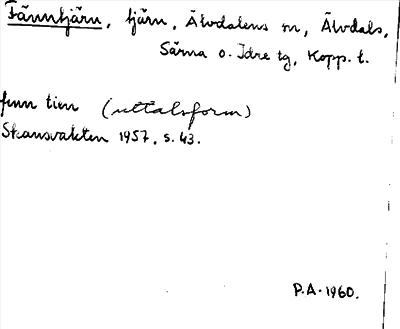 Fänntjärn, tjärn, Älvdalens sn, Älvdals,
Särna o. Idre tg, Kopp. l.
finn tien (uttalsform)
Skansvakten 1957, s. 43.
P.A. 1960.